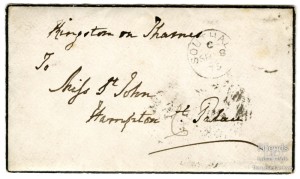 Kingston on Thames
To
Miss St John
Hampton Ct Palace
SOUTHA
C